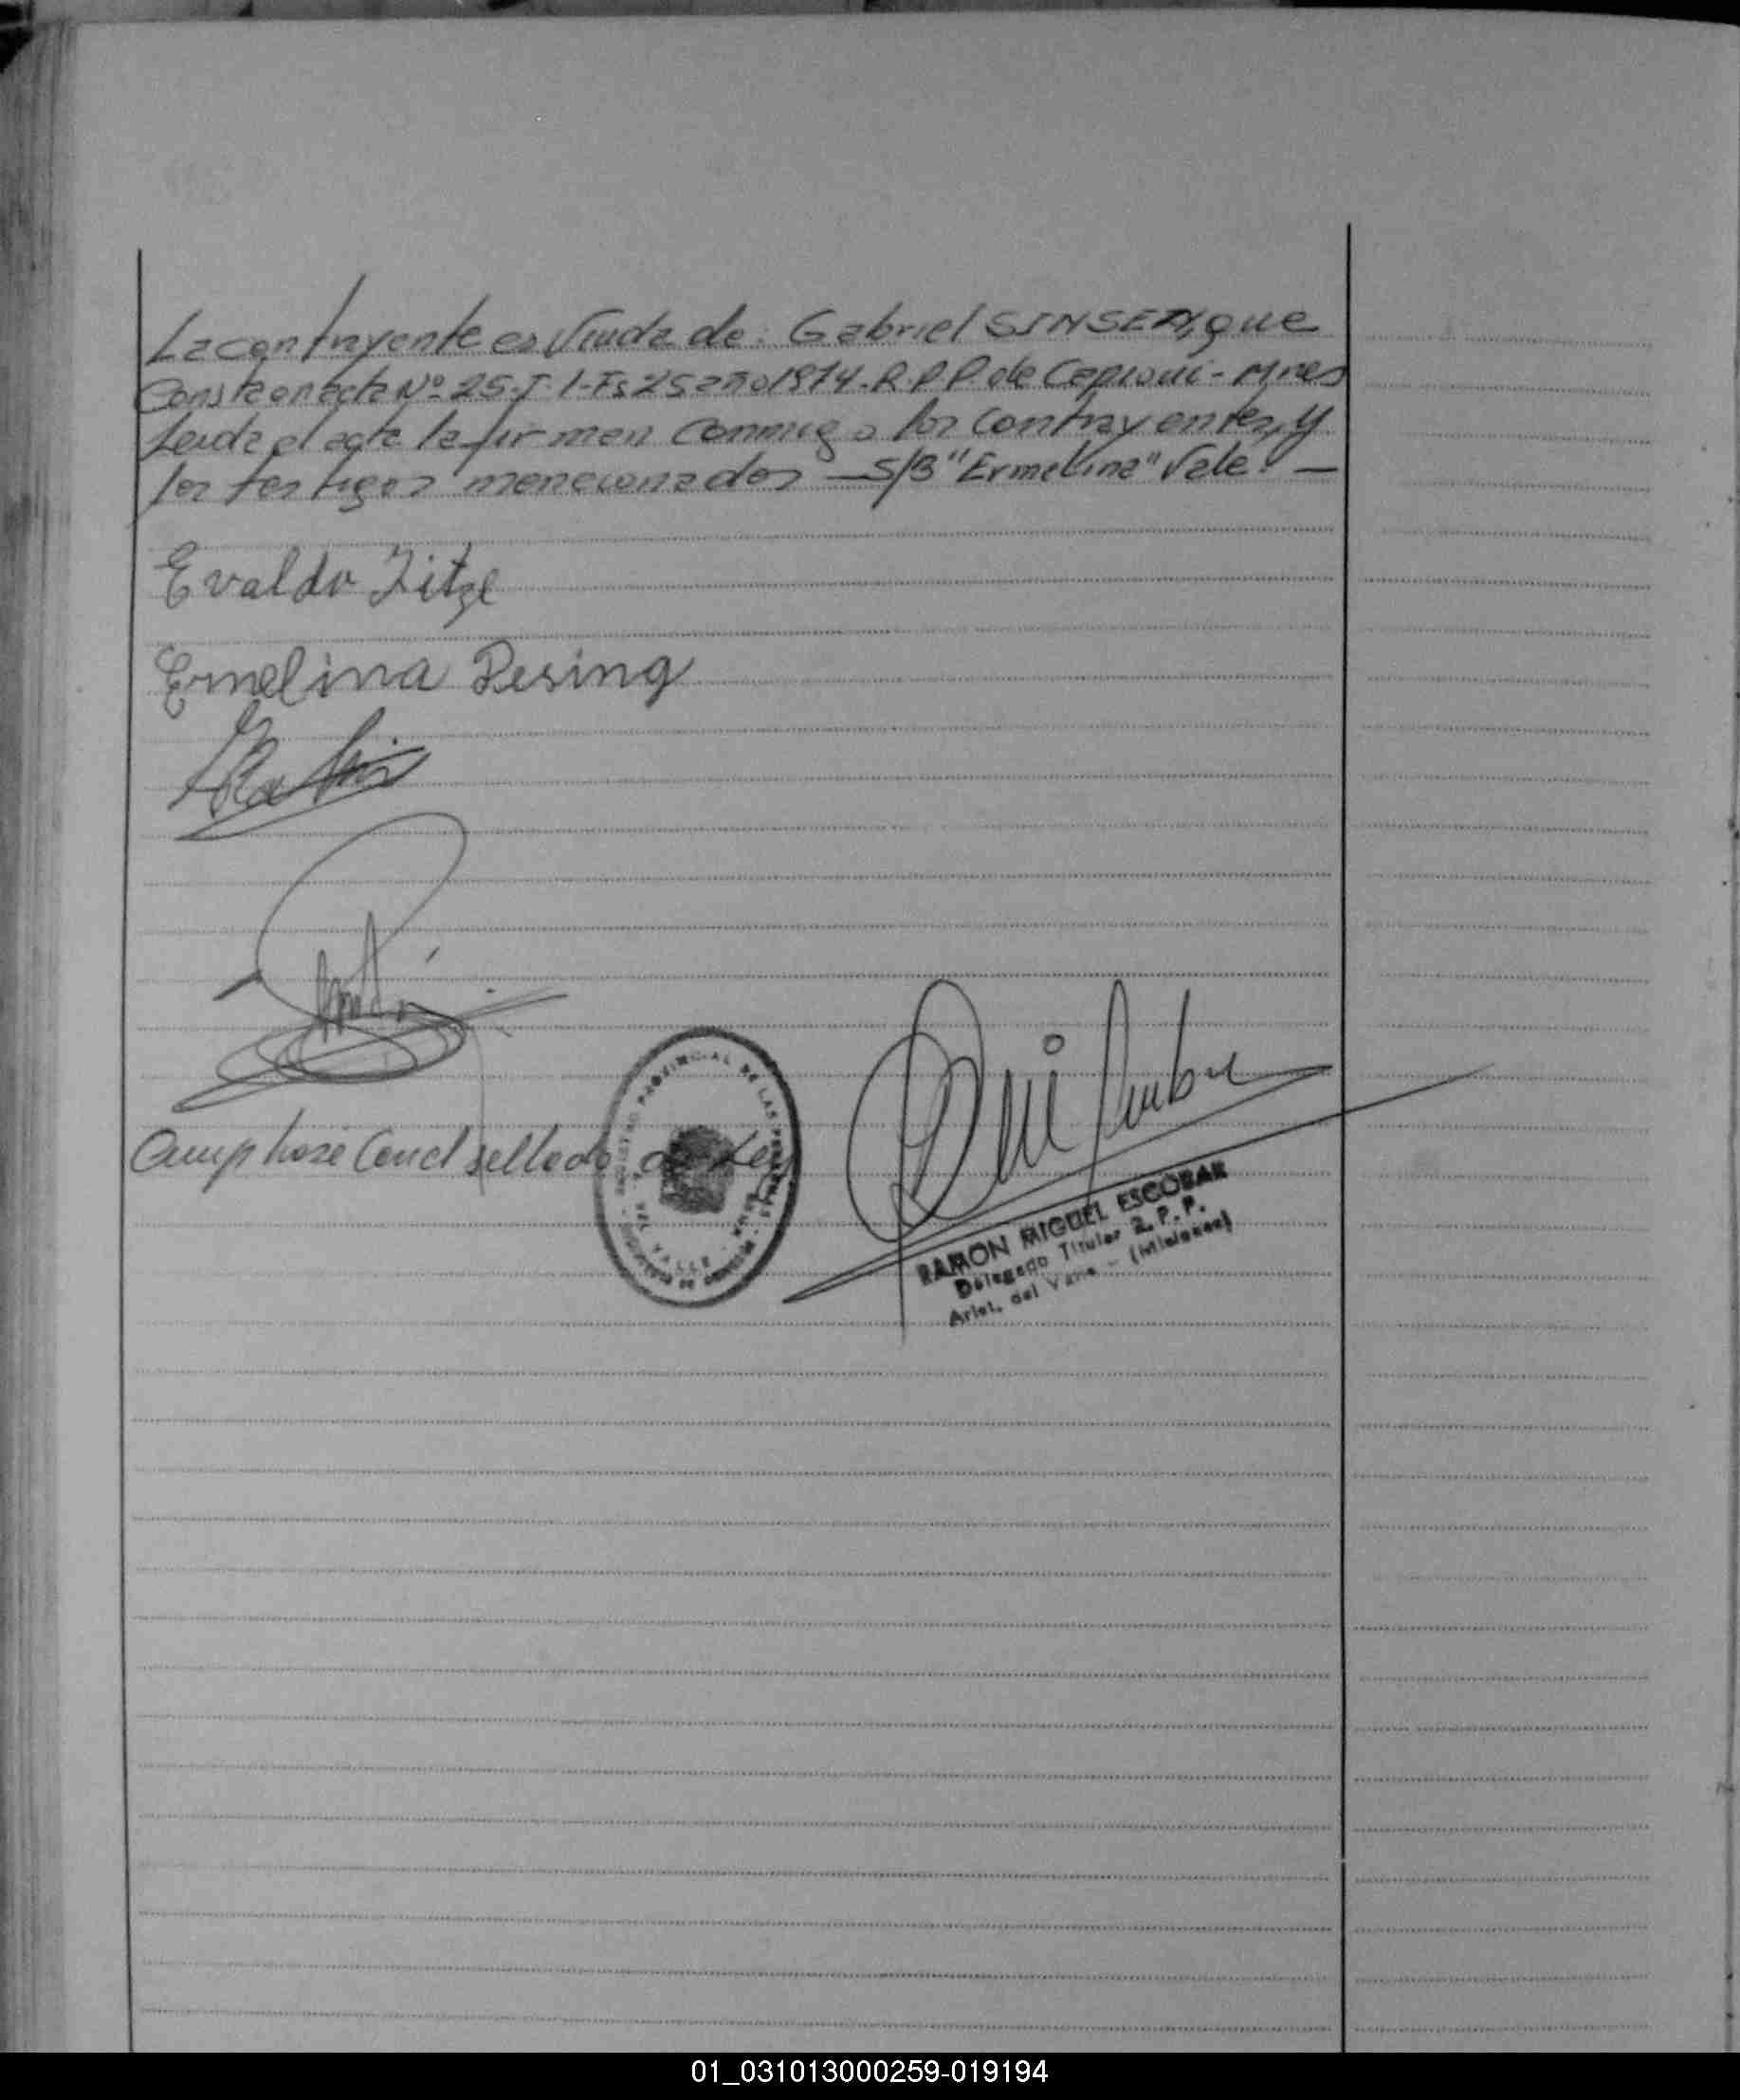 La contrayente es Viuda de: Gabriel SINSEN, que
Consta en acta Nº 25-T. 1-Fs 25 año 1974-R.P.P. de Capioví-Mnes
Leida el acta la firman conmigo los contrayentes, y
los testigos mencionados - S/B "Ermelina" Vale. -
Evaldo Zitze
Ermelina Desing
Cumplose con el sellado de Ley
REGISTRO PROVINCIAL DE LAS PERSONAS
DEL VALLE
RAMON MIGUEL ESCOBAR
Delegado Titular R. P. P.
Arist. del Valle - (Misiones)
01_031013000259-019194